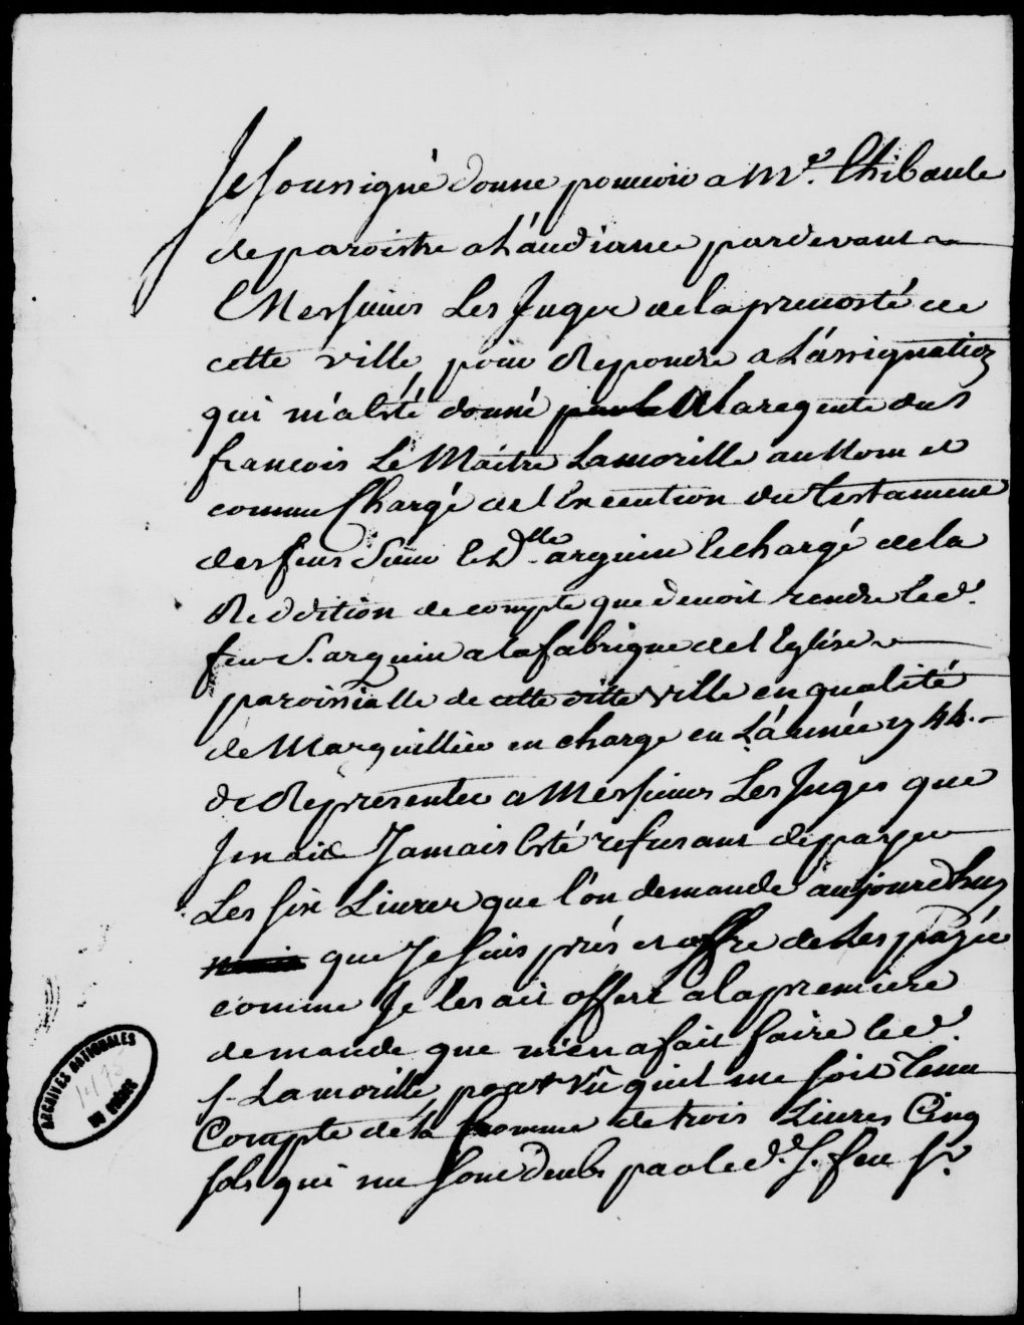 Je soussigné donne pouvoir a Me. Thibault
de paroistre a L'audiance pardevant
Messieurs Les Juges de la prevosté de
cette ville pour Repondre a L'assignation
qui m'a Esté donné a la requete du S
francois Le Maitre Lamorille au Nom et
comme Chargé de l'Execution du testament
des feus Sieur et Dlle arguin le chargé de la
Reddition de compte que devoit rendre led.
feu S. arguin a la fabrique de l'Eglise
paroissialle de cette ville en qualité
de Marguillier en charge en L'année 1744.
de Representer a Messieurs Les Juges que
Je n'ai Jamais Esté refusant de payer
Les six Livres que l'on demande aujourdhuy
que Je suis prés et offre de les payer
comme Je les ait offert a la premiere
demande que m'en a fait faire led.
S. Lamorille, vû qu'il me soit Tenu
Compte de la somme de trois Livres Cinq
sols qui me sont deubs par led. feu Sr.
ARCHIVES NATIONALES
DU QUÉBEC